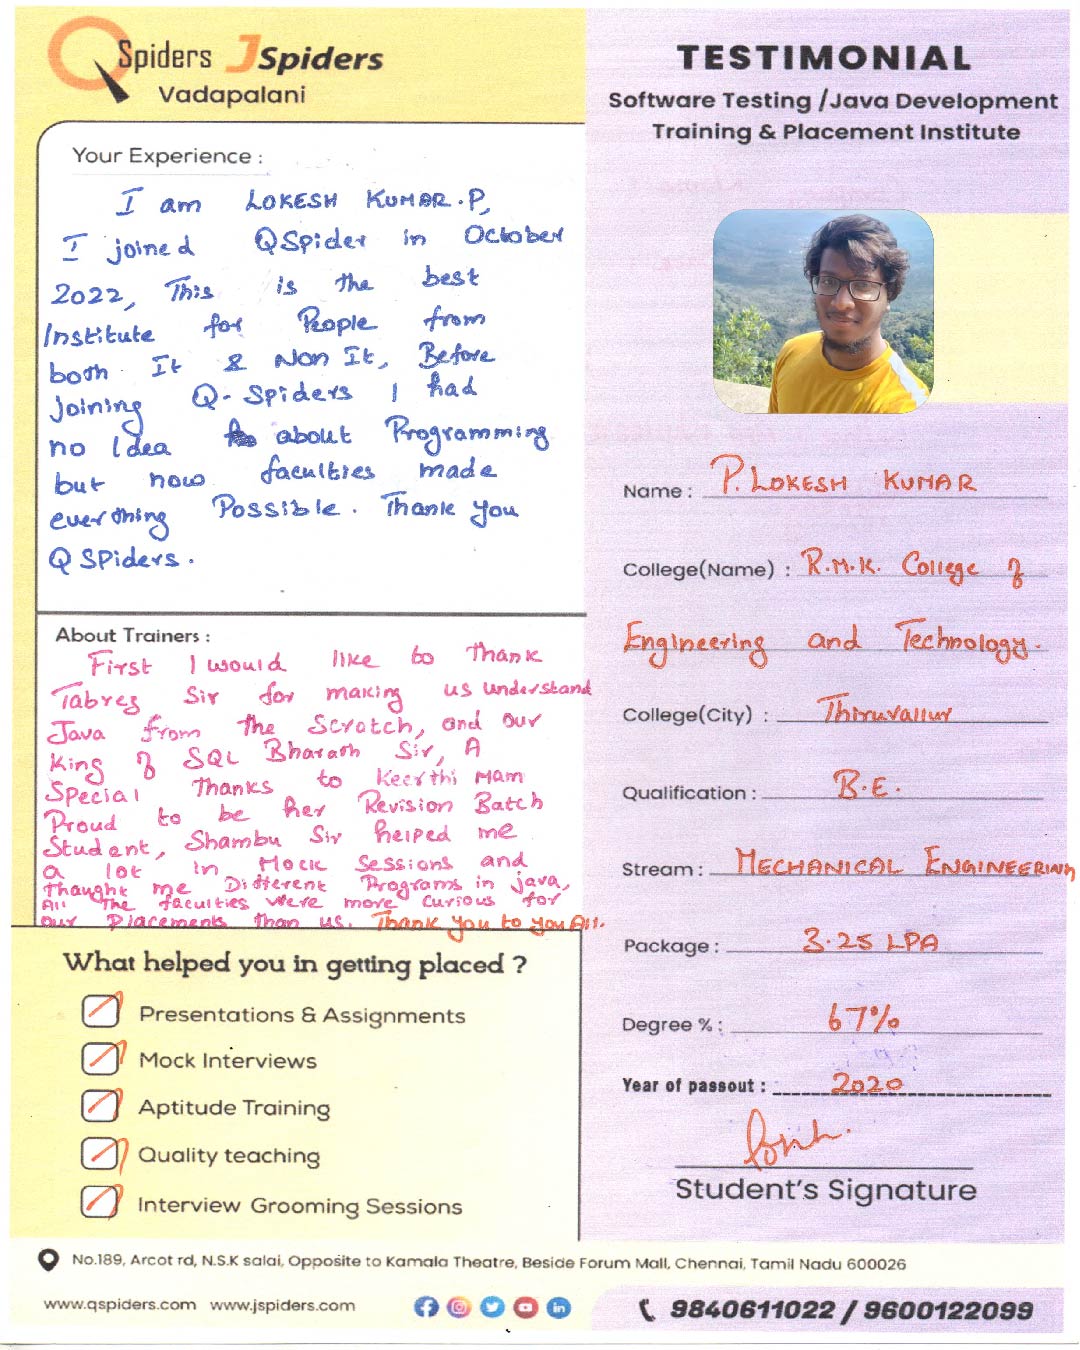 QSpiders JSpiders
Vadapalani
TESTIMONIAL
Software Testing /Java Development
Training & Placement Institute
Your Experience :
I am LOKESH KUMAR.P,
I joined QSpider in October
2022, This is the best
Institute for People from
both It & Non It, Before
joining Q-Spiders I had
no Idea about Programming
but now faculties made
everthing Possible. Thank you
Q SPiders.
About Trainers :
First I would like to Thank
Tabrez Sir for making us understand
Java from the Scratch, and our
King of SQL Bharath Sir, A
Special Thanks to Keerthi Mam
Proud to be her Revision Batch
Student, Shambu Sir helped me
a lot in Mock Sessions and
thaught me Different Programs in java,
All The faculties were more curious for
our Placements than us. Thank you to you All.
What helped you in getting placed ?
Presentations & Assignments
Mock Interviews
Aptitude Training
Quality teaching
Interview Grooming Sessions
Name : P. LOKESH KUMAR
College(Name) : R.M.K. College of
Engineering and Technology.
College(City) : Thiruvallur
Qualification : B.E.
Stream : MECHANICAL ENGINEERING
Package : 3.25 LPA
Degree % : 67%
Year of passout : 2020
Student's Signature
No.189, Arcot rd, N.S.K salai, Opposite to Kamala Theatre, Beside Forum Mall, Chennai, Tamil Nadu 600026
www.qspiders.com www.jspiders.com
9840611022 / 9600122099